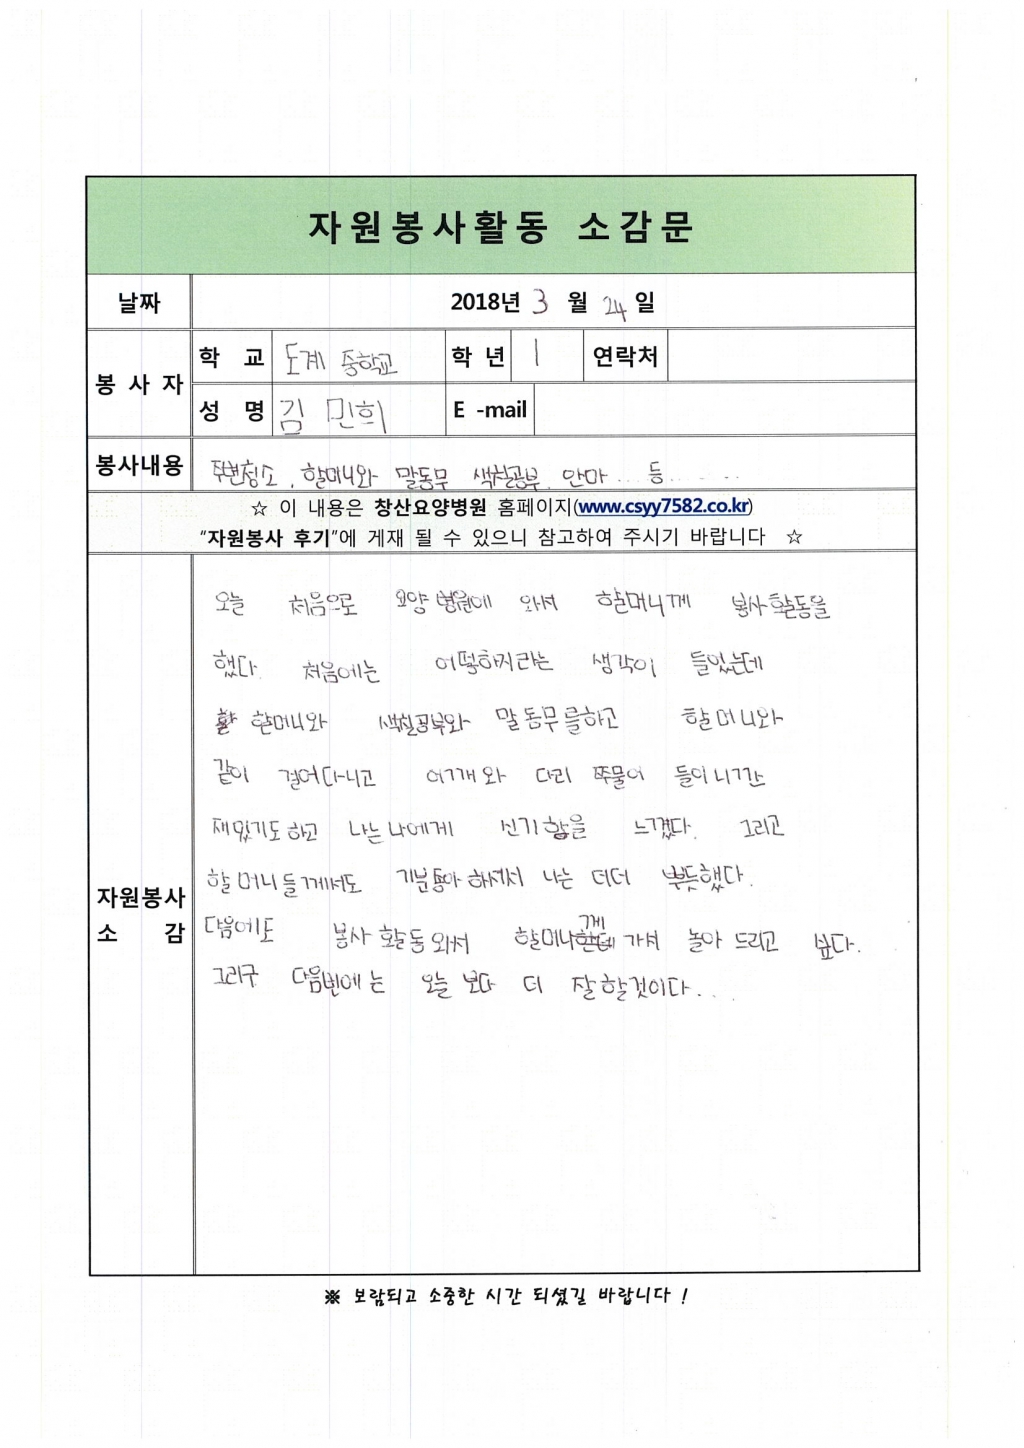 자원봉사활동 소감문
날짜 2018년 3 월 24 일
봉 사 자
학 교 도계 중학교 학 년 1 연락처
성 명 김 민희 E -mail
봉사내용 주변청소, 할머니와 말동무 색칠공부. 안마 ... 등 .....
☆ 이 내용은 창산요양병원 홈페이지(www.csyy7582.co.kr)
"자원봉사 후기"에 게재 될 수 있으니 참고하여 주시기 바랍니다 ☆
자원봉사
소 감
오늘 처음으로 요양병원에 와서 할머니께 봉사활동을
했다. 처음에는 어떻하지라는 생각이 들었는데
할머니와 색칠공부와 말동무를하고 할머니와
같이 걸어다니고 어깨와 다리 쭈물어 들이니깐
재밌기도하고 나는나에게 신기함을 느꼈다. 그리고
할머니들께서도 기분좋아 하셔서 나는 더더 뿌듯했다.
다음에도 봉사 활동와서 할머니께 가서 놀아 드리고 싶다.
그리구 다음번에는 오늘 보다 더 잘할것이다...
※ 보람되고 소중한 시간 되셨길 바랍니다 !